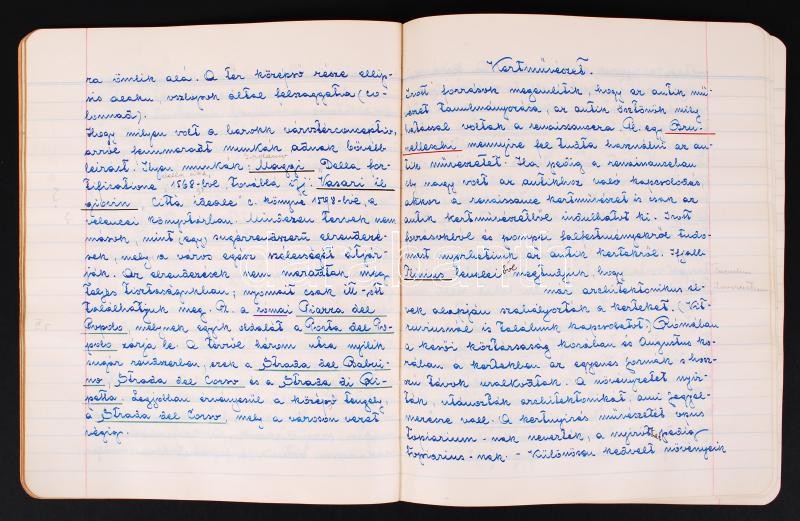 ra ömlik alá. A tér középső része ellip-
sis alaku, oszlopok által felszaggatva (co-
lonnad).
Hogy milyen volt a barokk városterconceptio,
arról fennmaradt munkák adnak bővebb
leirást. Ilyen munkák: Maggi, Della for-
tificatione, 1568-be, továbbá ifj. Vasari il
giovin, Città ideale c. könyve 1598-be, a
velencei könyvtárban. Mindezen tervek nem
mások, mint egy sugárrendszerű elrendezé-
sek, mely a város egész szélességét átjár-
ják. Az elrendezések nem maradtak meg
teljes tisztaságukban; nyomait csak itt-ott
találhatjuk meg. Pl. a romai Piazza del
Popolo, melynek egyik oldalát a Porta del Po-
polo zárja le. A térről három utca nyilik
sugár rendszerben, ezek a Strada del Babui-
no, Strada del Corso és a Strada di Ri-
petta. Legjobban érvényesül a középső tengely,
a Strada del Corso, mely a városon vezet
végig.
Kertművészet.
Irott források megemlitik, hogy az antik mű-
vészet tanulmányozása, az antik ösztönök mily
hatással voltak a renaissancera. Pl. egy Bru-
nelleschi mennyire fel tudta használni az an-
tik művészetet. Ha pedig a renaissanceban
ily nagy volt az antikhoz való kapcsolódás,
akkor a renaissance kertművészet is csak az
antik kertművészetből indulhatott ki. Irott
forrásokból és pompeji falfestményekről tudo-
mást nyerhetünk az antik kertekről. Ifjabb
Plinius leveleiből megtudjuk, hogy
már architektonikus el-
vek alapján szabályozták a kerteket. (Vit-
ruviusnál is találunk kapcsolatot) Rómában
a késői köztársaság korában és Augustus ko-
rában a kertekben az egyenes formák s hosz-
szu távok uralkodtak. A növényzetet nyir-
ták, utánozták architektonikát, ami fegyel-
mezésre vall. A kertnyirás művészetét opus
topiarium-nak nevezték, a nyirót pedig
topiarius-nak. - Különösen kedvelt növényeik
darabanth